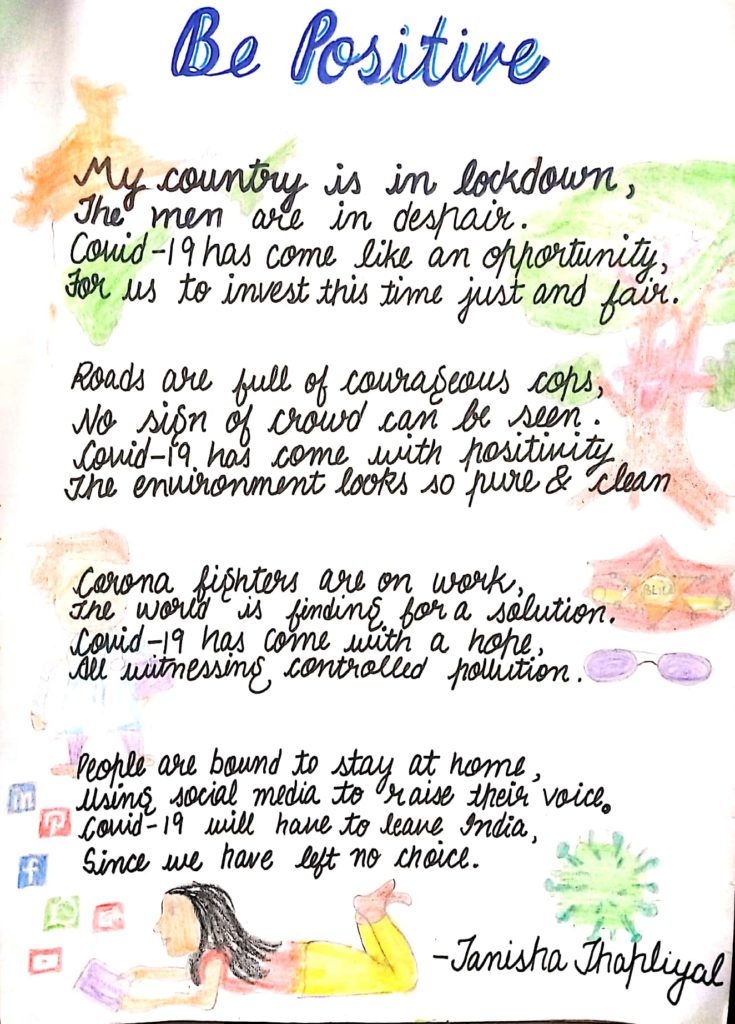 Be Positive
My country is in lockdown,
The men are in despair.
Covid-19 has come like an opportunity,
For us to invest this time just and fair.
Roads are full of courageous cops,
No sign of crowd can be seen.
Covid-19 has come with positivity
The environment looks so pure & clean
Corona fighters are on work,
The world is finding for a solution.
Covid-19 has come with a hope,
All witnessing controlled pollution.
People are bound to stay at home,
Using social media to raise their voice.
Covid-19 will have to leave India,
Since we have left no choice.
-Tanisha Thapliyal
in
f